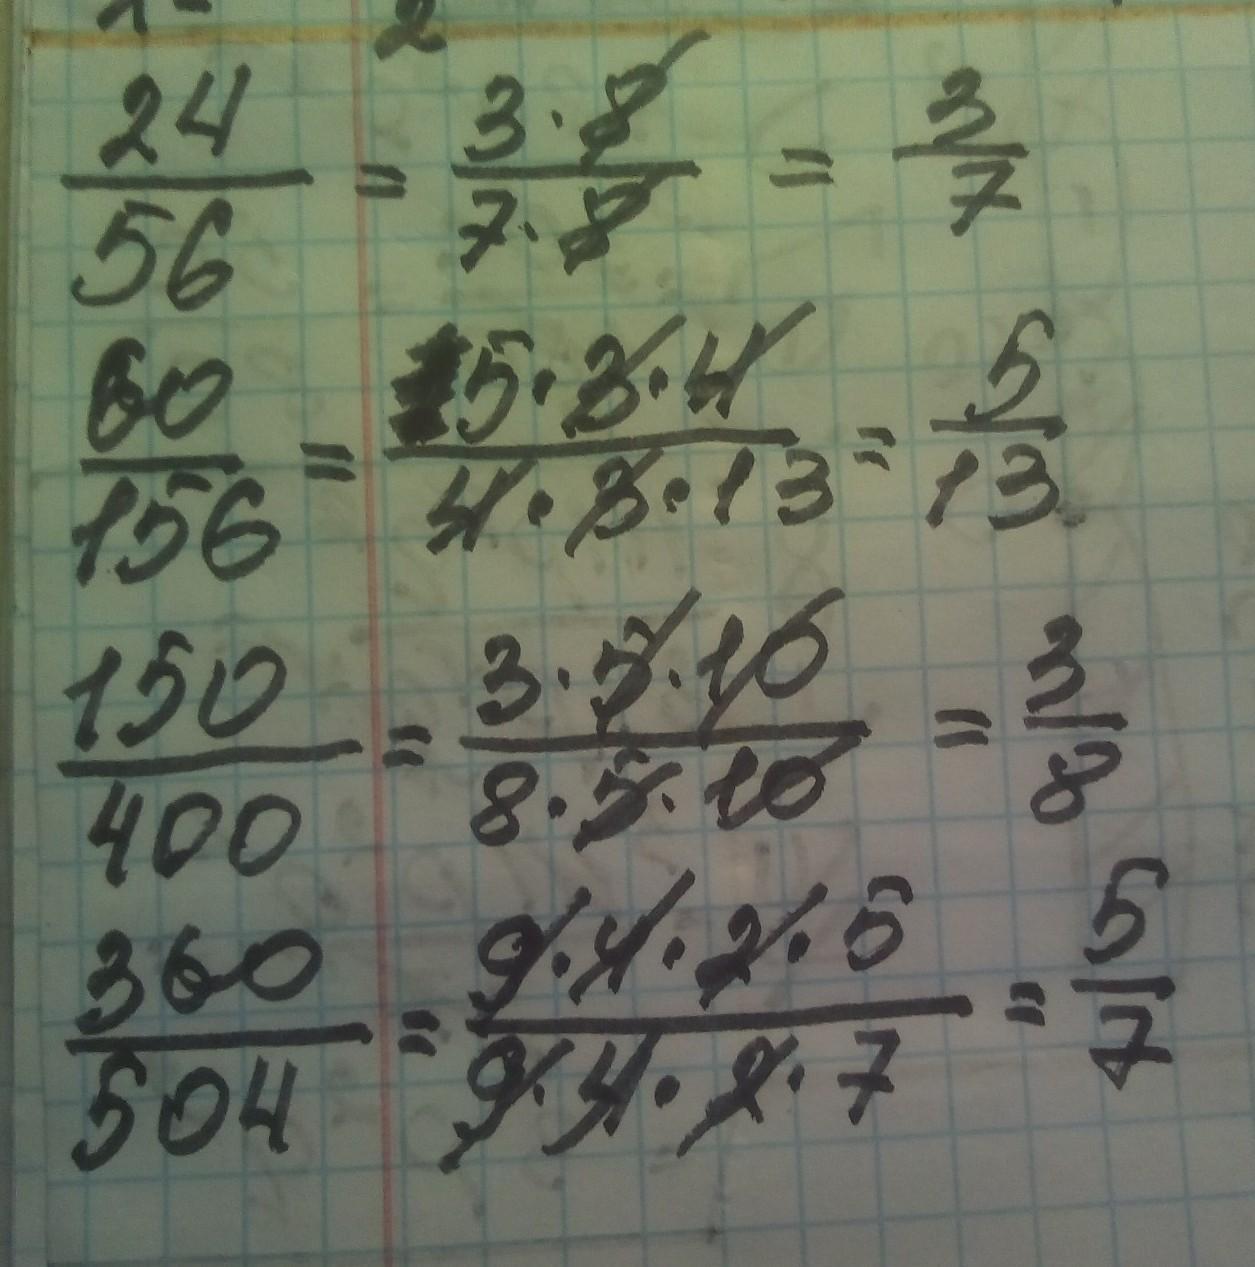 24/56 = 3·8/7·8 = 3/7
60/156 = 5·3·4/4·3·13 = 5/13
150/400 = 3·5·10/8·5·10 = 3/8
360/504 = 9·4·2·5/9·4·2·7 = 5/7